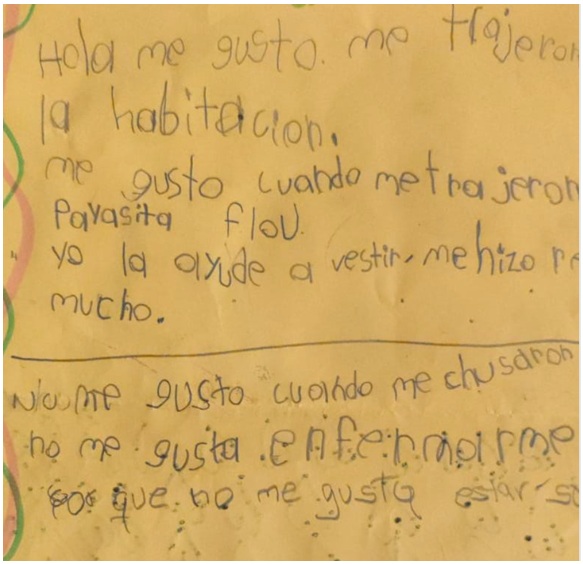 Hola me gusto. me trajeron
la habitacion.
me gusto cuando me trajeron
Payasita flou.
yo la ayude a vestir, me hizo re
mucho.
No me gusto cuando me chusaron
no me gusta enfermarme
por que no me gusta estar si